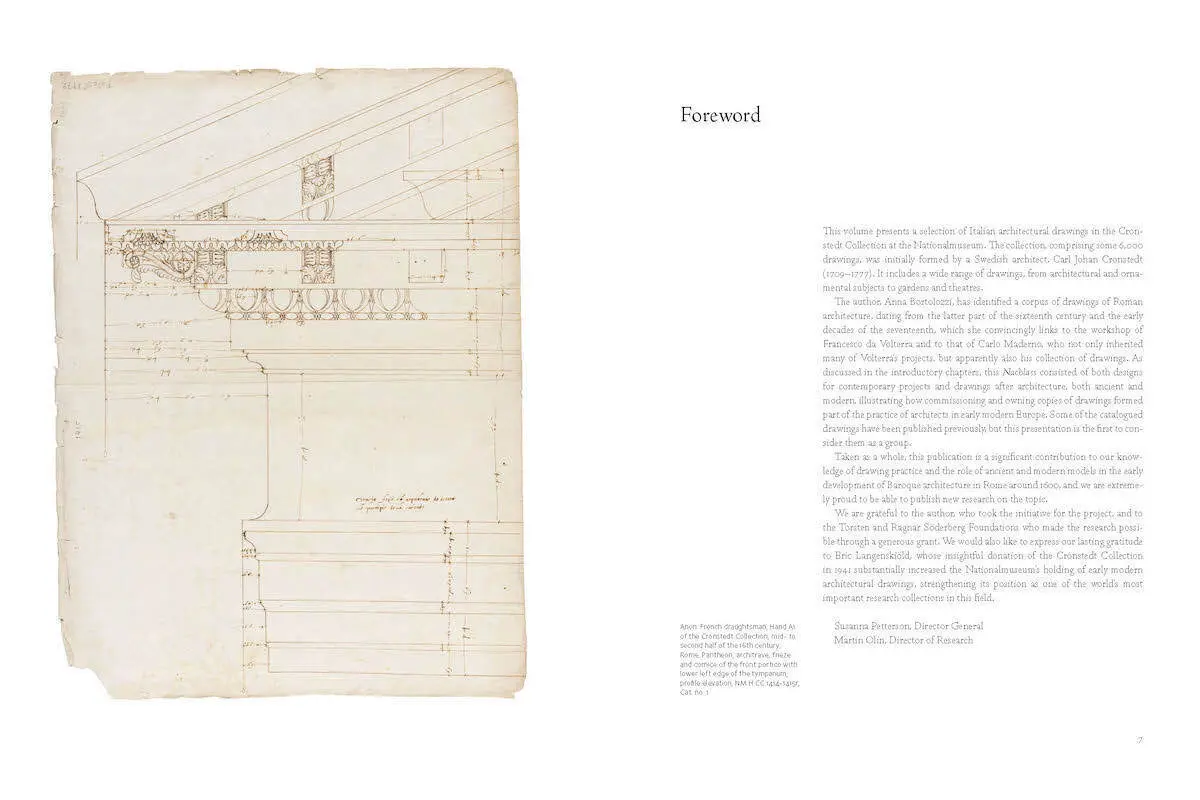 Foreword
This volume presents a selection of Italian architectural drawings in the Cron-
stedt Collection at the Nationalmuseum. The collection, comprising some 6,000
drawings, was initially formed by a Swedish architect, Carl Johan Cronstedt
(1709–1777). It includes a wide range of drawings, from architectural and orna-
mental subjects to gardens and theatres.
The author, Anna Bortolozzi, has identified a corpus of drawings of Roman
architecture, dating from the latter part of the sixteenth century and the early
decades of the seventeenth, which she convincingly links to the workshop of
Francesco da Volterra and to that of Carlo Maderno, who not only inherited
many of Volterra's projects, but apparently also his collection of drawings. As
discussed in the introductory chapters, this Nachlass consisted of both designs
for contemporary projects and drawings after architecture, both ancient and
modern, illustrating how commissioning and owning copies of drawings formed
part of the practice of architects in early modern Europe. Some of the catalogued
drawings have been published previously, but this presentation is the first to con-
sider them as a group.
Taken as a whole, this publication is a significant contribution to our know-
ledge of drawing practice and the role of ancient and modern models in the early
development of Baroque architecture in Rome around 1600, and we are extreme-
ly proud to be able to publish new research on the topic.
We are grateful to the author, who took the initiative for the project, and to
the Torsten and Ragnar Söderberg Foundations who made the research possi-
ble through a generous grant. We would also like to express our lasting gratitude
to Eric Langenskiöld, whose insightful donation of the Cronstedt Collection
in 1941 substantially increased the Nationalmuseum's holding of early modern
architectural drawings, strengthening its position as one of the world's most
important research collections in this field.
Susanna Petterson, Director General
Martin Olin, Director of Research
Anon. French draughtsman, Hand A1
of the Cronstedt Collection, mid- to
second half of the 16th century,
Rome, Pantheon, architrave, frieze
and cornice of the front portico with
lower left edge of the tympanum,
profile elevation, NM H CC 1414-1415r,
Cat. no. 1
7